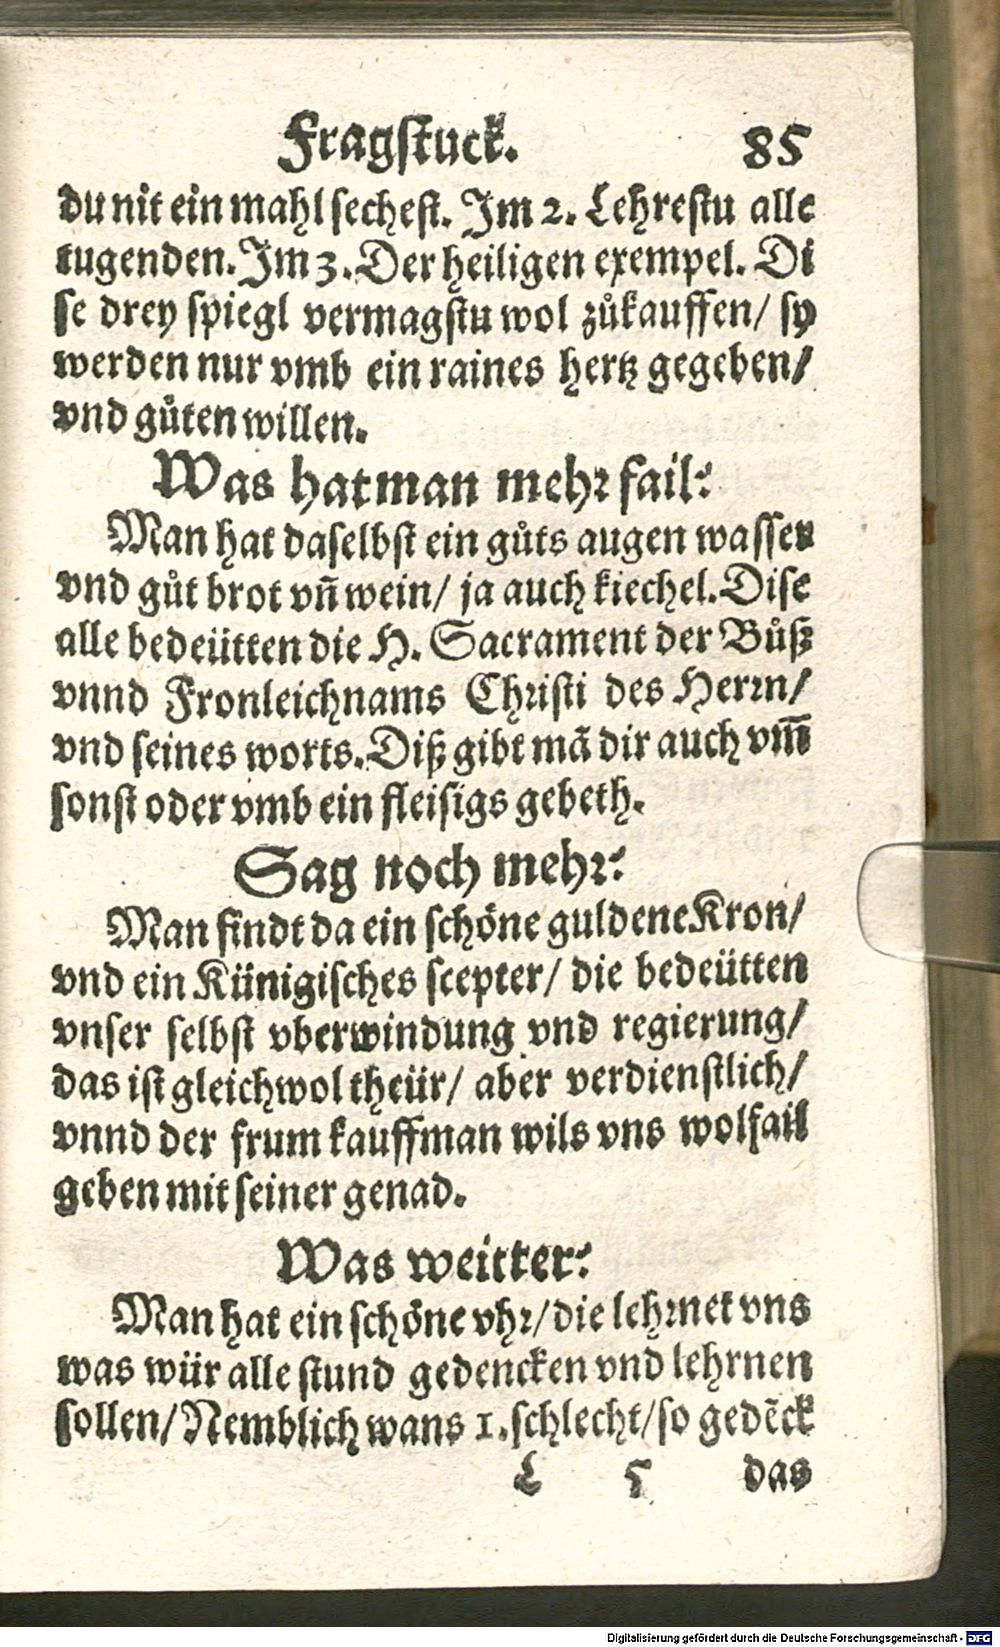 Fragstuck. 85
du nit ein mahl sechest. Im 2. Lehrestu alle
tugenden. Im 3. Der heiligen exempel. Di
se drey spiegl vermagstu wol zůkauffen/ sy
werden nur vmb ein raines hertz gegeben/
vnd gůten willen.
Was hat man mehr fail?
Man hat daselbst ein gůts augen wasser
vnd gůt brot vñ wein/ ja auch kiechel. Dise
alle bedeütten die H. Sacrament der Bůß
vnnd Fronleichnams Christi des Herrn/
vnd seines worts. Diß gibt mã dir auch vm̃
sonst oder vmb ein fleisigs gebeth.
Sag noch mehr?
Man findt da ein schöne guldene Kron/
vnd ein Künigisches scepter/ die bedeütten
vnser selbst vberwindung vnd regierung/
das ist gleichwol theür/ aber verdienstlich/
vnnd der frum kauffman wils vns wolfail
geben mit seiner genad.
Was weitter?
Man hat ein schöne vhr/ die lehrnet vns
was wür alle stund gedencken vnd lehrnen
sollen/ Nemblich wans 1. schlecht/ so gedẽck
L 5 das
Digitalisierung gefördert durch die Deutsche Forschungsgemeinschaft - DFG